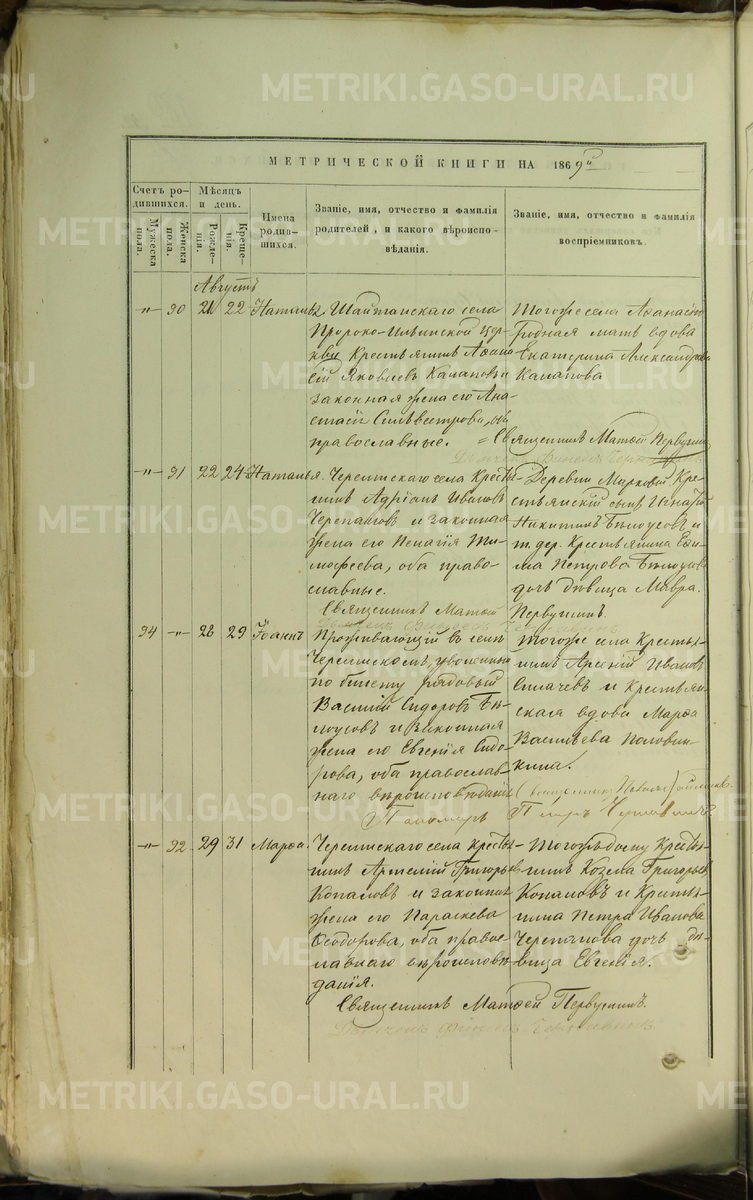 METRIKI.GASO-URAL.RU
МЕТРИЧЕСКОЙ КНИГИ НА 1869й
Счетъ родившихся.
Мужеска пола.
Женска пола.
Мѣсяцъ и день.
Рожденія.
Крещенія.
Имена родившихся.
Званіе, имя, отчество и фамилія
родителей, и какого вѣроиспо-
вѣданія.
Званіе, имя, отчество и фамилія
воспріемниковъ.
Августъ
-"- 30 21 22 Наталья
Шайтанскаго села
Пророко-Ильинской цер-
кви Крестьянинъ Аѳана
сій Яковлевъ Калаповъ и
законная жена его Ана-
стасія Сильвестрова, оба
православные.
Тогоже села Аѳанасія
Родная мать вдова
Екатерина Александрова
Калапова
Священникъ Матѳей Первушинъ
-"- 31 22 24 Наталья.
Черемисскаго села Кресть-
янинъ Адріанъ Ивановъ
Черепановъ и законная
жена его Пелагія Ти-
мофеева, оба право-
славные.
Деревни Марковой Кре-
стьянскій сынъ Игнатій
Никитинъ Бѣлоусовъ и
т. дер. Крестьянина Ефи-
ма Петрова Бѣлоусова
дочь дѣвица Мавра.
Священникъ Матѳей Первушинъ.
34 -"- 28 29 Іоаннъ
Проживающій въ селѣ
Черемисскомъ, уволенный
по билету рядовый
Василій Сидоровъ Бѣ-
лоусовъ и законная
жена его Евгенія Сидо-
рова, оба православ-
наго вѣроисповѣданія
Тогоже села Кресть-
янинъ Арсеній Ивановъ
и Крестьян-
ская вдова Марѳа
Васильева Половин-
кина.
Пономарь Петръ
-"- 32 29 31 Марѳа.
Черемисскаго села Кресть-
янинъ Артемій Григорьевъ
Копаловъ и законная
жена его Параскева
Ѳеодорова, оба право-
славнаго вѣроисповѣ-
данія.
Крестья-
нинъ Козьма Григорьевъ
Копаловъ и Крестья-
нина Петра Иванова
Черепанова дочь дѣ-
вица Евгенія.
Священникъ Матѳей Первушинъ.